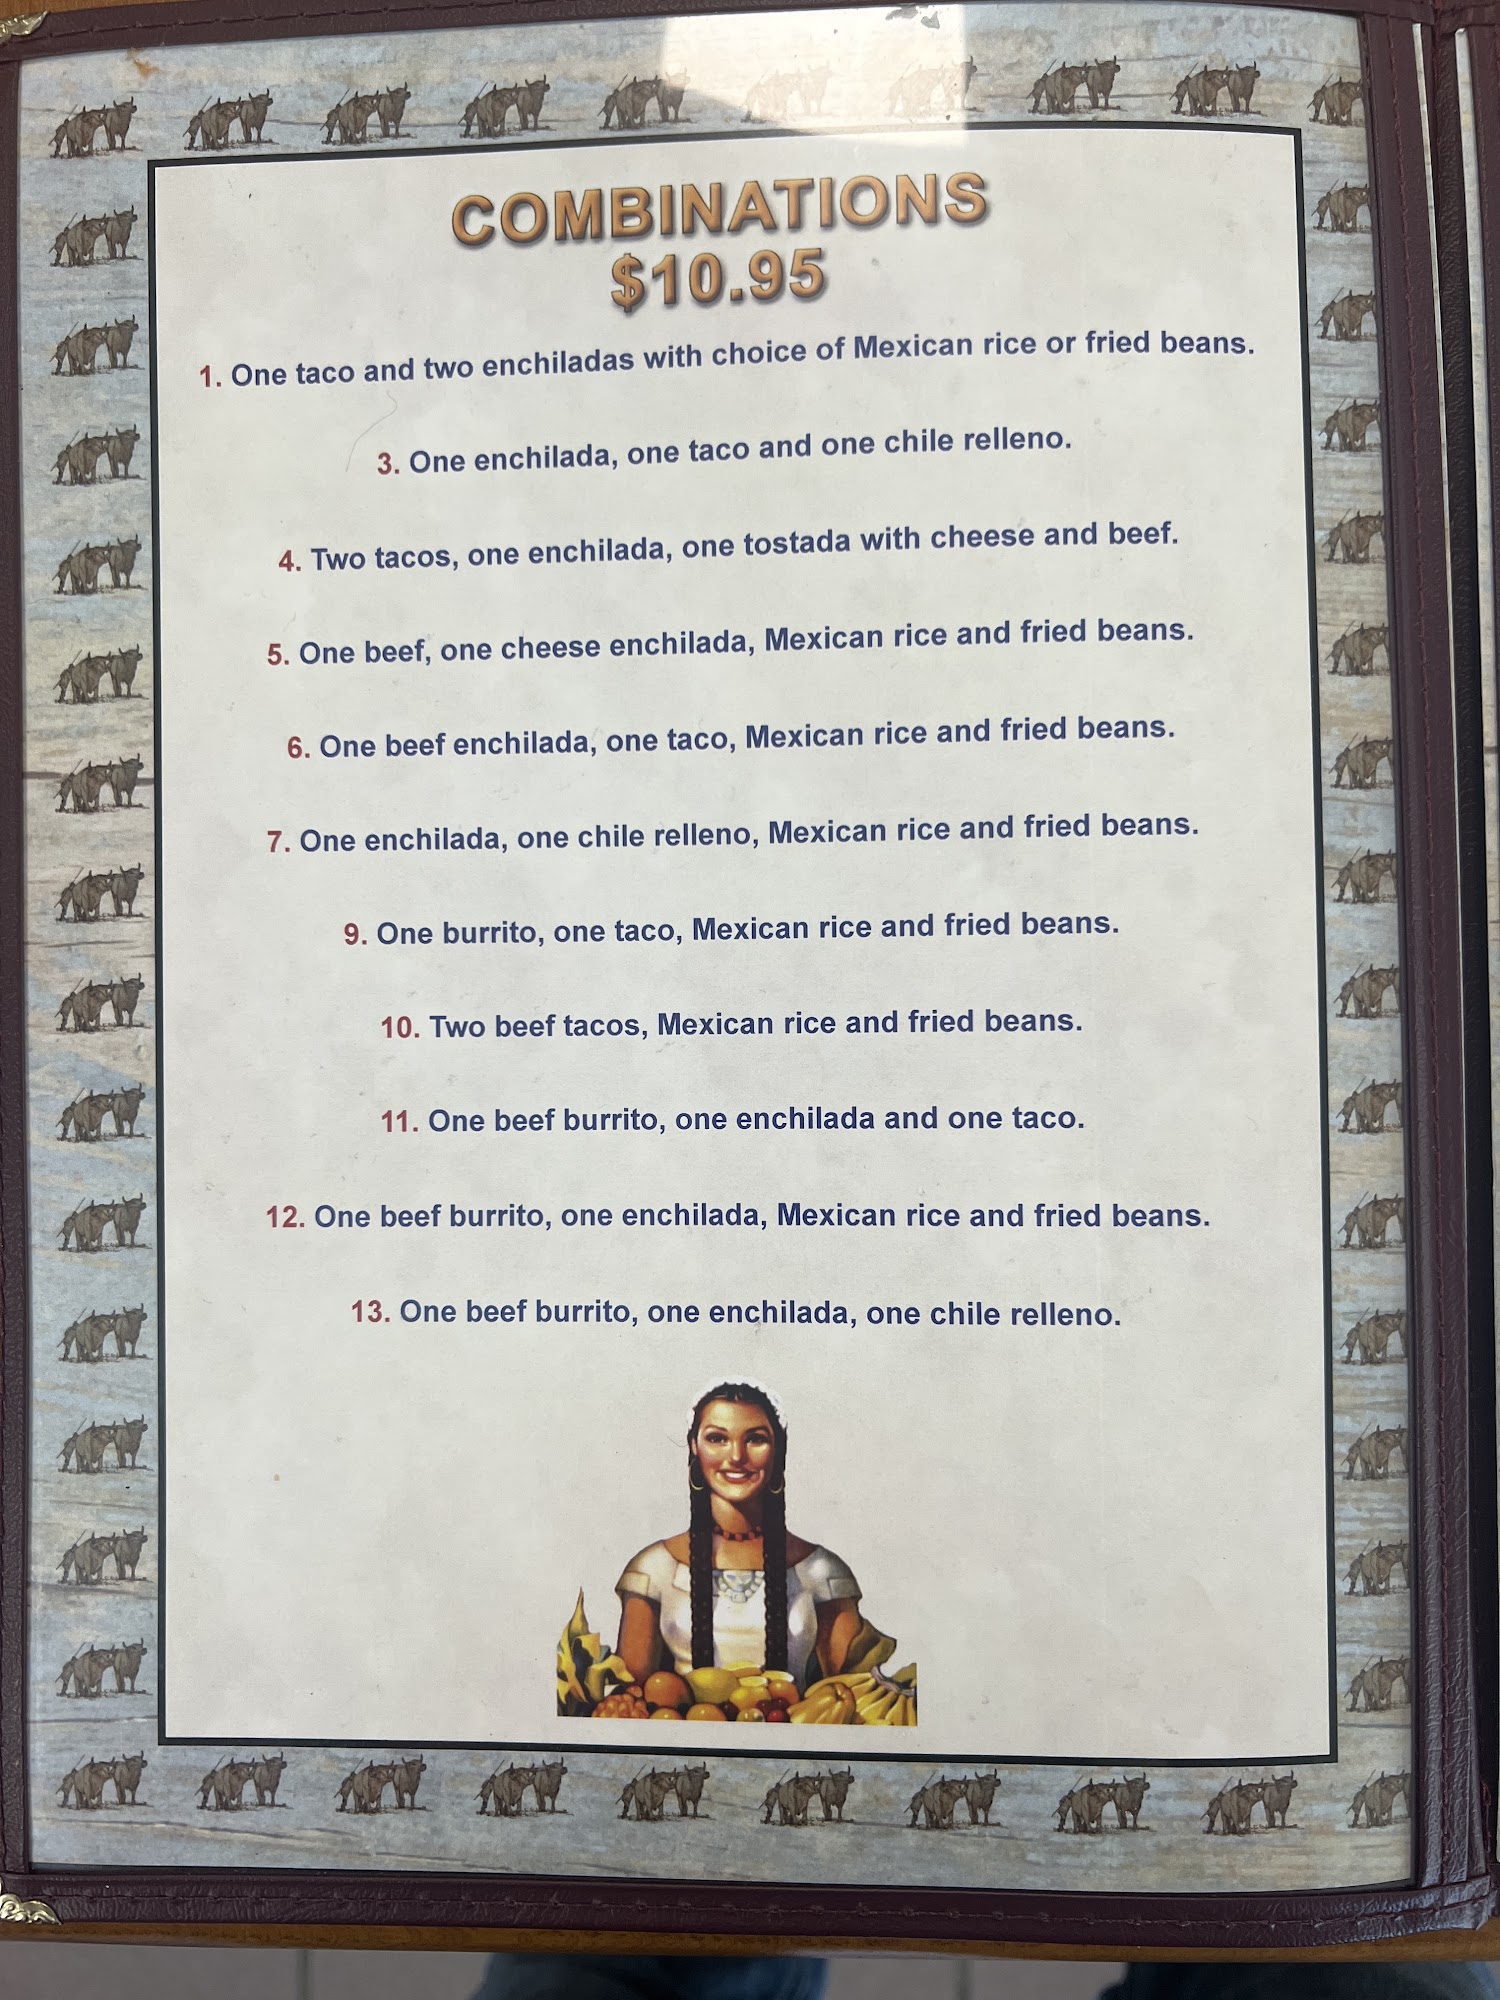 COMBINATIONS
$10.95
1. One taco and two enchiladas with choice of Mexican rice or fried beans.
3. One enchilada, one taco and one chile relleno.
4. Two tacos, one enchilada, one tostada with cheese and beef.
5. One beef, one cheese enchilada, Mexican rice and fried beans.
6. One beef enchilada, one taco, Mexican rice and fried beans.
7. One enchilada, one chile relleno, Mexican rice and fried beans.
9. One burrito, one taco, Mexican rice and fried beans.
10. Two beef tacos, Mexican rice and fried beans.
11. One beef burrito, one enchilada and one taco.
12. One beef burrito, one enchilada, Mexican rice and fried beans.
13. One beef burrito, one enchilada, one chile relleno.